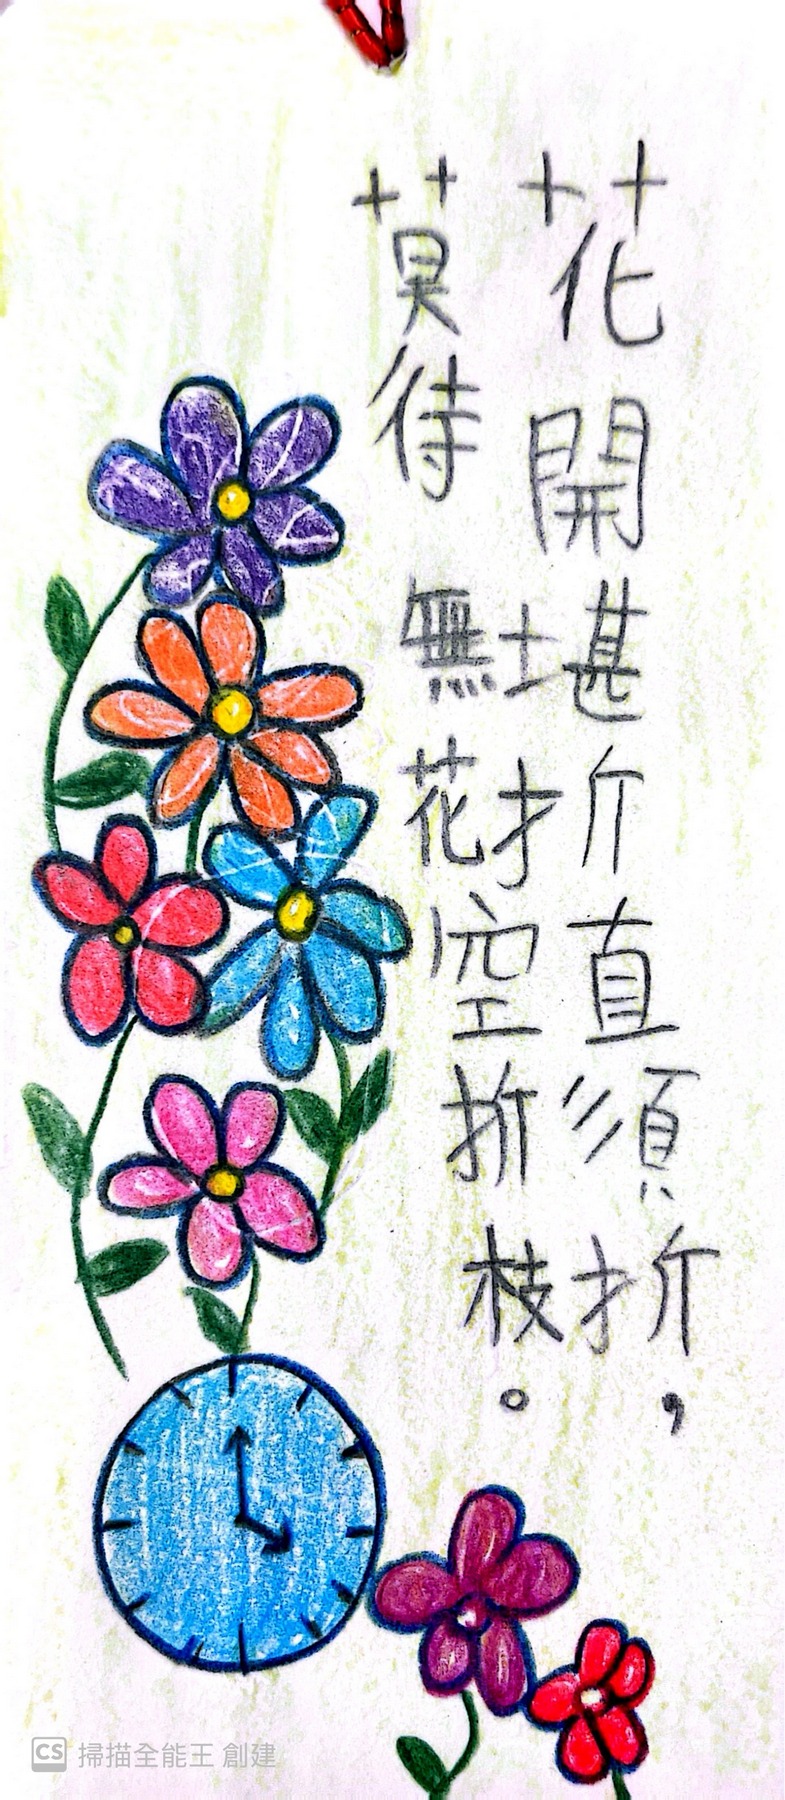 花開堪折直須折，
莫待無花空折枝。
CS 掃描全能王 創建